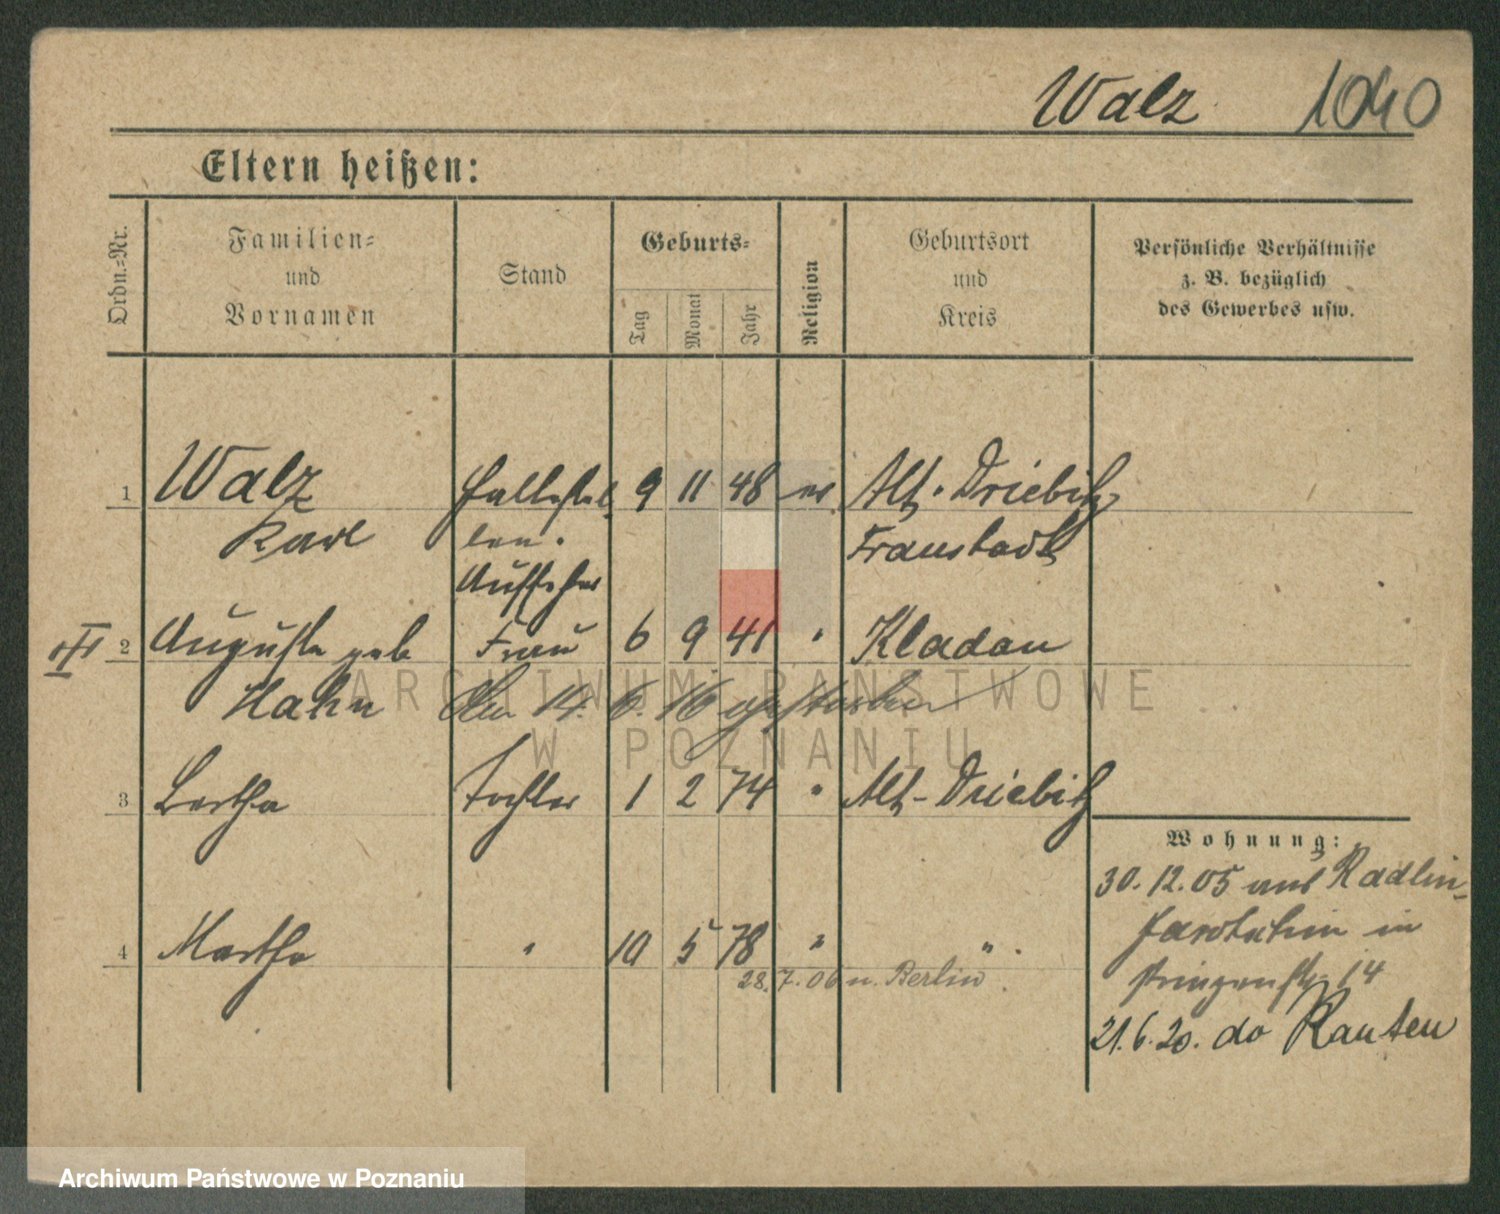 Walz 1040
Eltern heißen:
Ordn.-Nr.
Familien-
und
Vornamen
Stand
Geburts-
Tag
Monat
Jahr
Religion
Geburtsort
und
Kreis
Persönliche Verhältnisse
z. B. bezüglich
des Gewerbes usw.
1 Walz Haltestel- 9 11 48 ev Alt-Driebitz
Karl len. Fraustadt
Aufseher
III 2 Auguste geb Frau 6 9 41 " Kladau
Hahn den 14. 6. 16 gestorben
ARCHIWUM PAŃSTWOWE
W POZNANIU
3 Bertha Tochter 1 2 74 " Alt-Driebitz
Wohnung:
30. 12. 05 aus Radlin-
Jarotschin in
Prinzenstr 14
4 Martha " 10 5 78 " "
28. 7. 06 n. Berlin
21. 6. 20. do Rauten
Archiwum Państwowe w Poznaniu